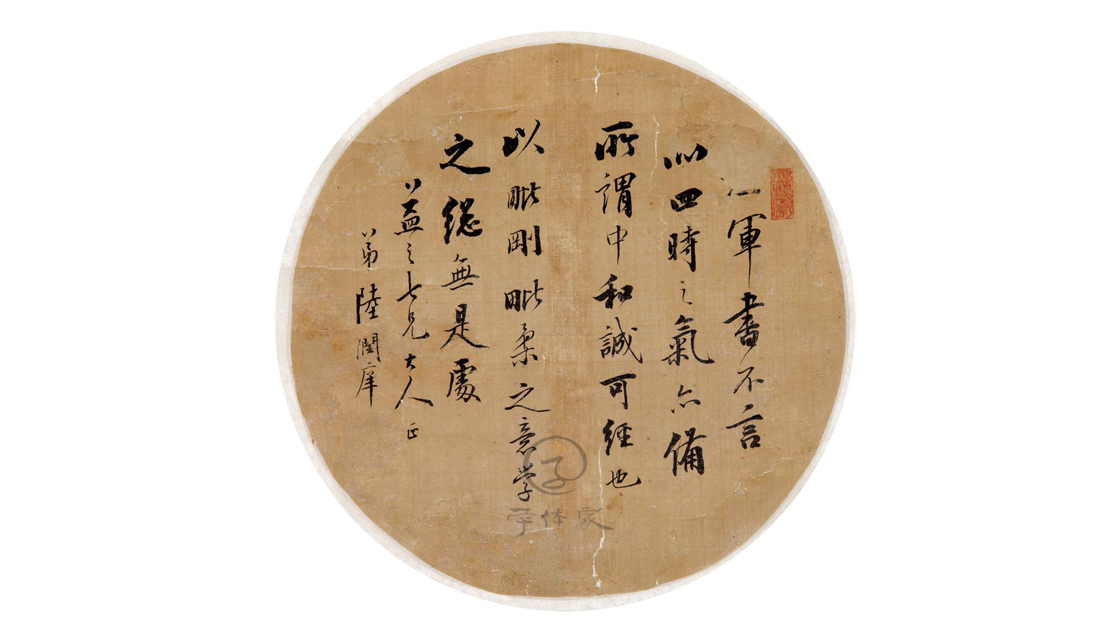 右軍書不言
而四時之氣亦備
所謂中和誠可經也
以毗剛毗柔之意学
之總無是處
益之七兄大人正
弟陸潤庠
字体家